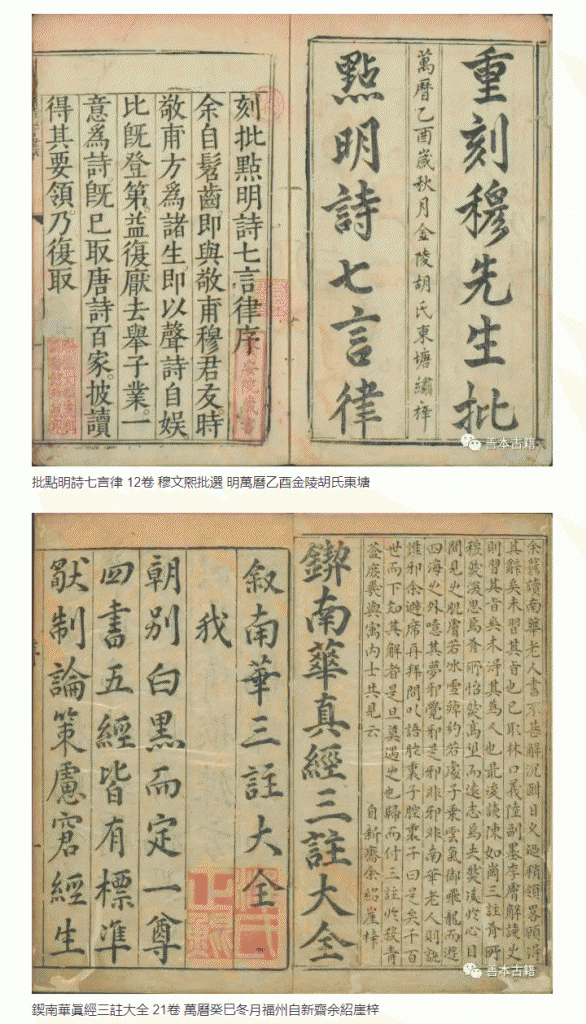 重刻穆先生批
萬曆乙酉歲秋月金陵胡氏東塘繡梓
點明詩七言律
刻批點明詩七言律序
余自髫齒即與敬甫穆君友時
敬甫方爲諸生即以聲詩自娛
比旣登第益復厭去舉子業一
意爲詩旣已取唐詩百家披讀
得其要領乃復取
善本古籍
批點明詩七言律 12卷 穆文熙批選 明萬曆乙酉金陵胡氏東塘
讀南華老人書不甚解沉酣日久迺稍領畧顧淂
其辭矣未習其旨也已取林口義陸副墨李膚解讀之
則習其旨矣未淂其為人也最後讀陳如岡三註
間見之肌膚若冰雪綽約若處子乗雲氣御飛龍而遊
四海之外噫其夢邪覺邪是邪非邪非南華老人則
誰邪余避席再拜
世而下知其解者是旦莫遇之也歸而付三註
共見云
自新齋余紹崖梓
鍥南華真經三註大全
叙南華三註大全
我
朝别白黒而定一尊
四書五經皆有標準
制論策慮窘經生
善本古籍
鍥南華眞經三註大全 21卷 萬曆癸巳冬月福州自新齋余紹崖梓